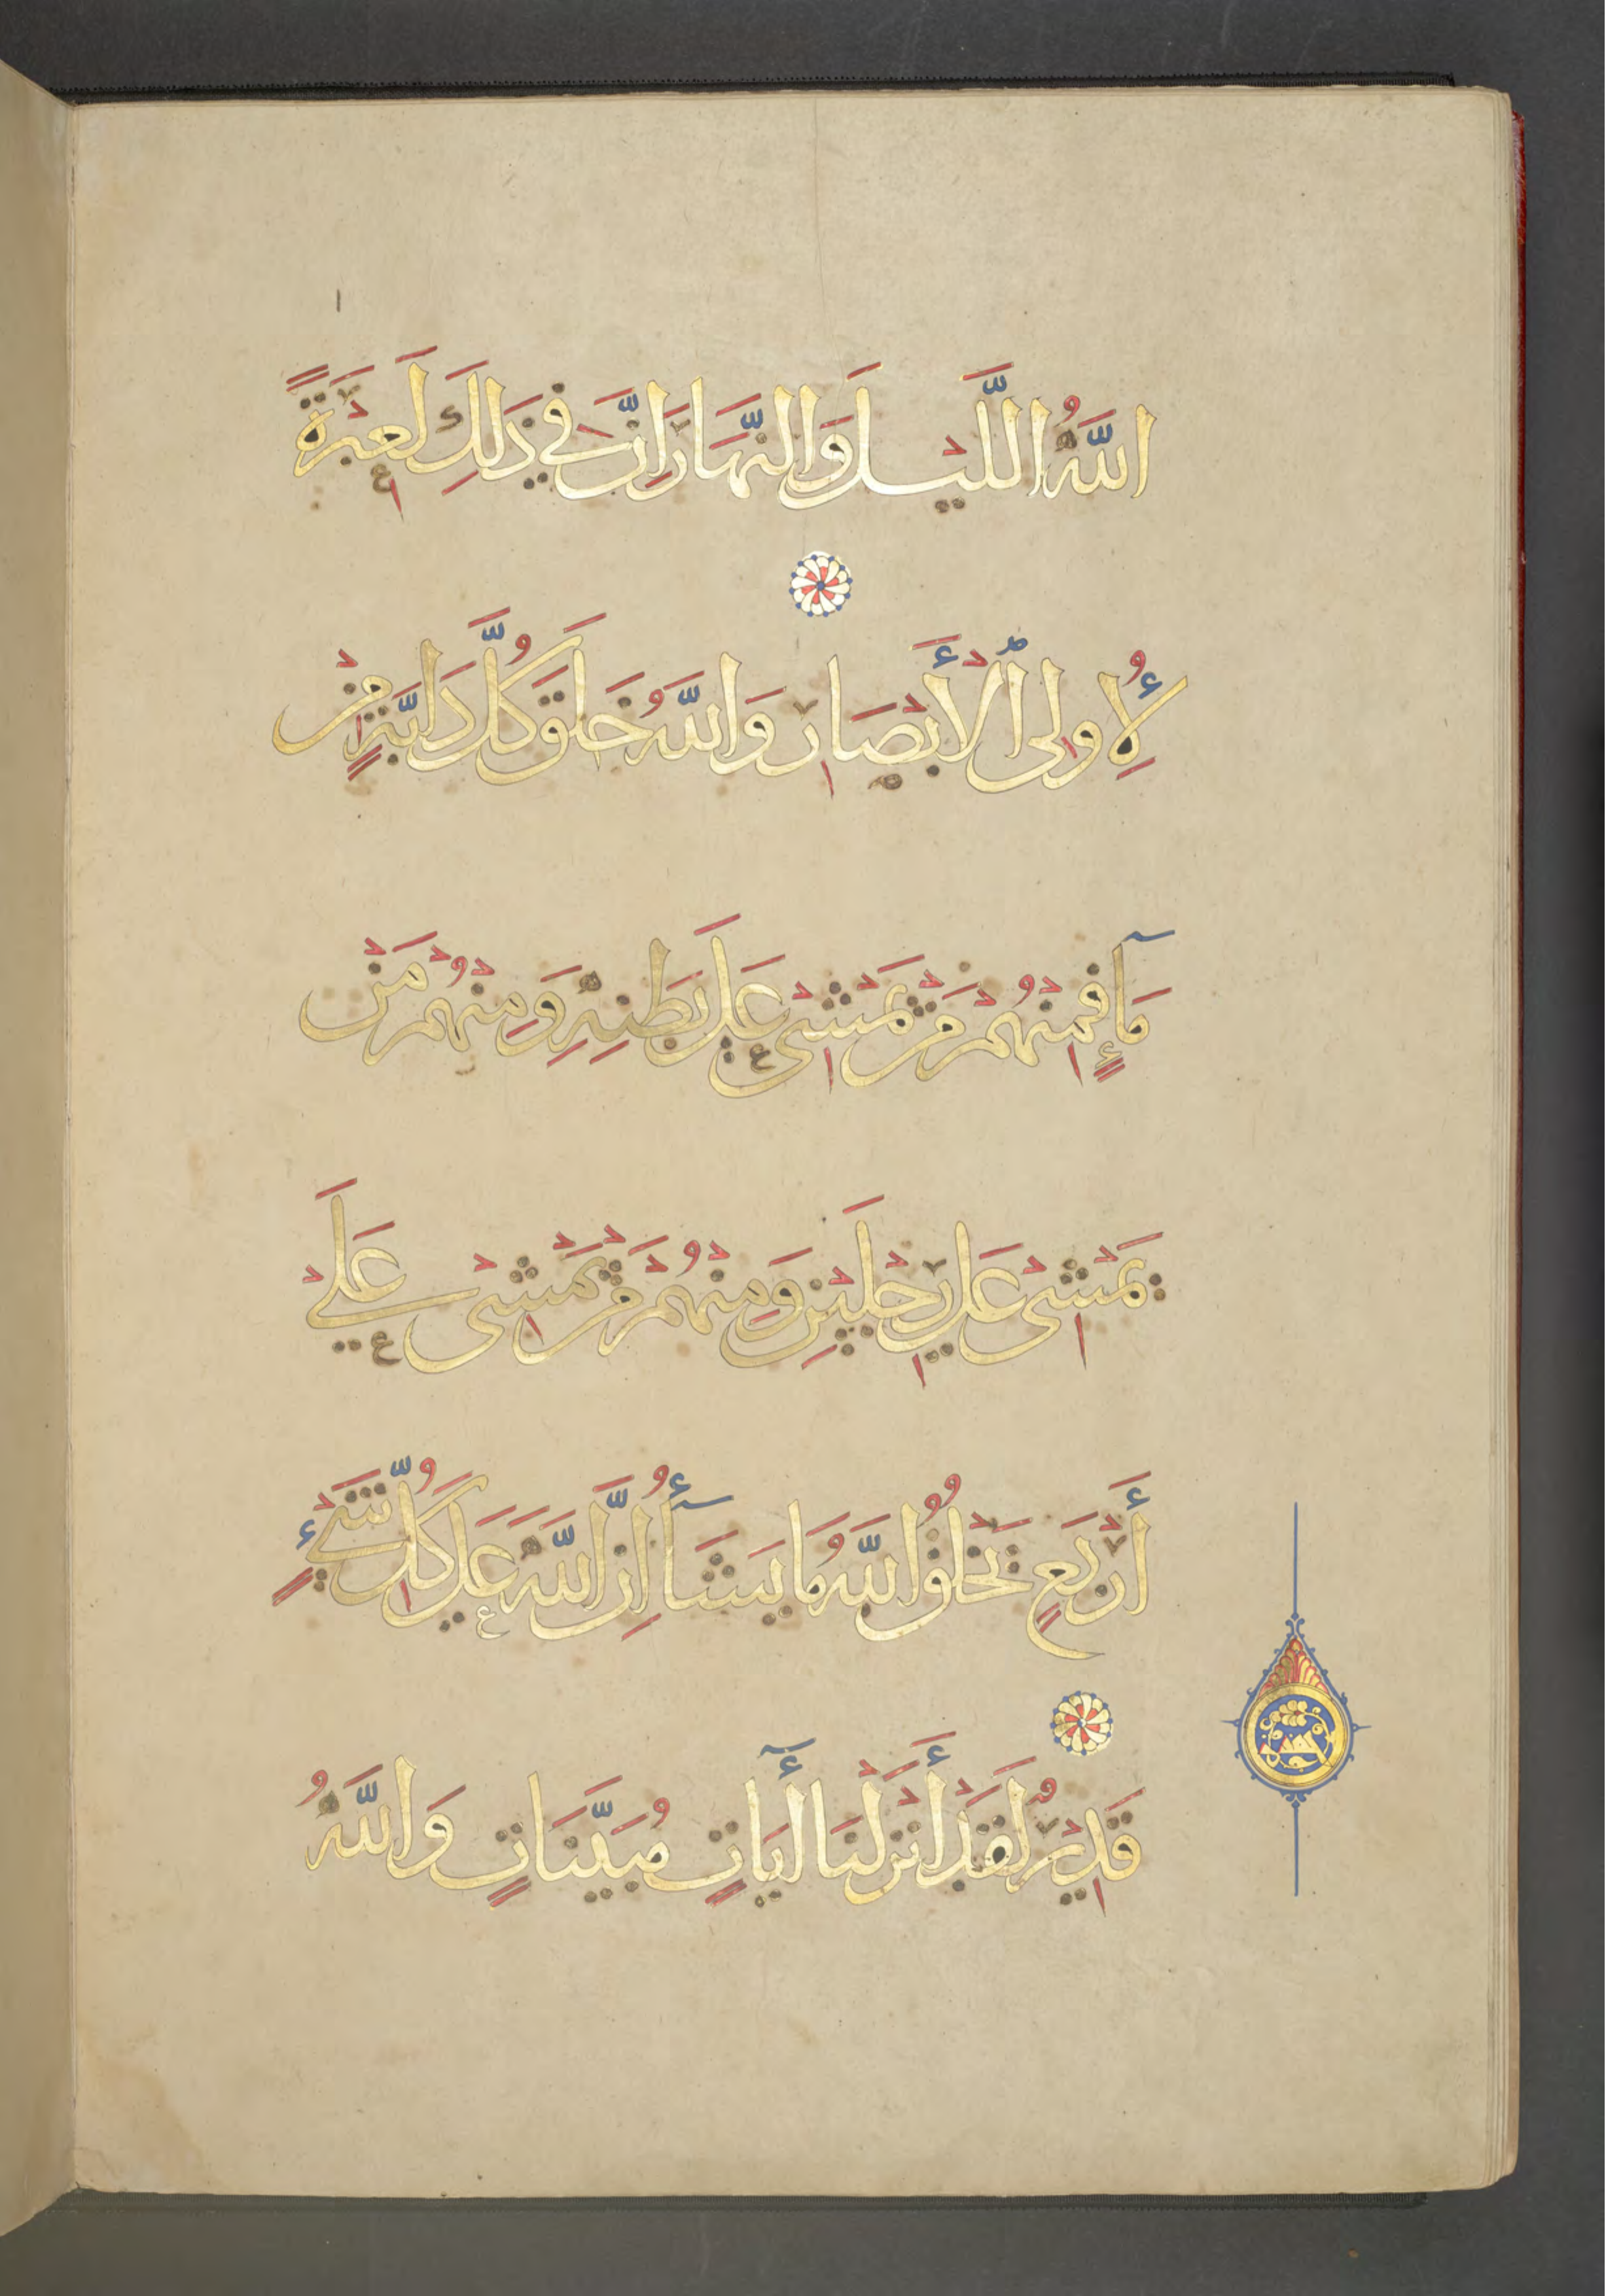 اللَّهُ اللَّيْلَ وَالنَّهَارَ إِنَّ فِي ذَلِكَ لَعِبْرَةً
لِأُولِى الْأَبْصَارِ وَاللَّهُ خَلَقَ كُلَّ دَابَّةٍ مِنْ
مَآءٍ فَمِنْهُمْ مَنْ يَمْشِى عَلَى بَطْنِهِ وَمِنْهُمْ مَنْ
يَمْشِى عَلَى رِجْلَيْنِ وَمِنْهُمْ مَنْ يَمْشِى عَلَى
أَرْبَعٍ يَخْلُقُ اللَّهُ مَا يَشَآءُ إِنَّ اللَّهَ عَلَى كُلِّ شَيْءٍ
قَدِيرٌ لَقَدْ أَنْزَلْنَا آيَاتٍ مُبَيِّنَاتٍ وَاللَّهُ